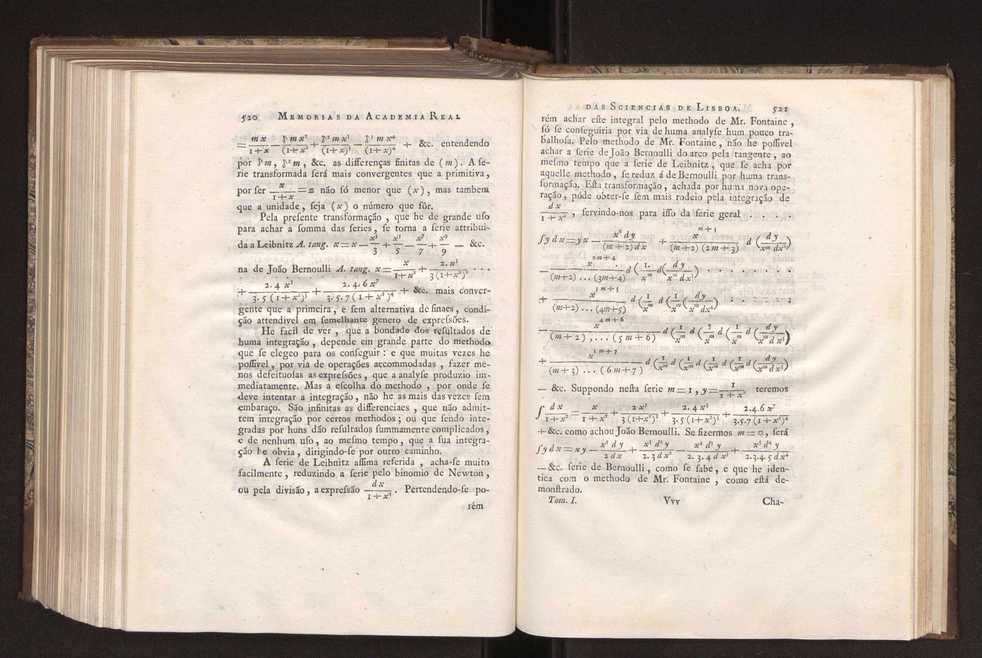 520 MEMORIAS DA ACADEMIA REAL
= mx/(1+x) + mx²/(1+x)² + mx³/(1+x)³ + mx⁴/(1+x)⁴ + &c. entendendo
por m, ²m, &c. as differenças finitas de (m). A se-
rie transformada será mais convergentes que a primitiva,
por ser x/(1+x) = a não só menor que (x), mas tambem
que a unidade, seja (x) o número que fôr.
Pela presente transformação, que he de grande uso
para achar a somma das series, se torna a serie attribui-
da a Leibnitz A. tang. x = x − x³/3 + x⁵/5 − x⁷/7 + x⁹/9 − &c.
na de João Bernoulli A. tang. x = x/(1+x²) + 2.x³/3(1+x²)² . . .
+ 2.4x⁵/3.5(1+x²)³ + 2.4.6x⁷/3.5.7(1+x²)⁴ + &c. mais conver-
gente que a primeira, e sem alternativa de sinaes, condi-
ção attendivel em semelhante genero de expressões.
He facil de ver, que a bondade dos resultados de
huma integração, depende em grande parte do methodo
que se elegeo para os conseguir: e que muitas vezes he
possivel, por via de operações accommodadas, fazer me-
nos defeituosas as expressões, que a analyse produzio im-
mediatamente. Mas a escolha do methodo, por onde se
deve intentar a integração, não he as mais das vezes sem
embaraço. São infinitas as differenciaes, que não admit-
tem integração por certos methodos; ou que sendo inte-
gradas por huns dão resultados summamente complicados,
e de nenhum uso, ao mesmo tempo, que a sua integra-
ção he obvia, dirigindo-se por outro caminho.
A serie de Leibnitz assima referida, acha-se muito
facilmente, reduzindo a serie pelo binomio de Newton,
ou pela divisão, a expressão dx/(1+x²). Pertendendo-se po-
rém
DAS SCIENCIAS DE LISBOA. 521
rém achar este integral pelo methodo de Mr. Fontaine,
só se conseguiria por via de huma analyse hum pouco tra-
balhosa. Pelo methodo de Mr. Fontaine, não he possivel
achar a serie de João Bernoulli do arco pela tangente, ao
mesmo tempo que a serie de Leibnitz, que se acha por
aquelle methodo, se reduz á de Bernoulli por huma trans-
formação. Esta transformação, achada por huma nova ope-
ração, póde obter-se sem mais rodeio pela integração de
dx/(1+x²), servindo-nos para isso da serie geral . . . .
∫ydx = yx − x²dy/(m+2)dx + x^(m+3)/(m+2)(2m+3) d(dy/x^m dx²)
− x^(2m+4)/(m+2)...(3m+4) d(1/x^m d(dy/x^m dx)) . . . . . . .
+ x^(3m+5)/(m+2)...(4m+5) d(1/x^m d(1/x^m d(dy/x^m dx⁴) . . . . .
− x^(4m+6)/(m+2),...(5m+6) d(1/x^m d(1/x^m d(1/x^m d(dy/x^m dx⁵)
+ x^(5m+7)/(m+3)...(6m+7) d(1/x^m d(1/x^m d(1/x^m d(1/x^m d(dy/x^m dx⁶)
− &c. Suppondo nesta serie m = 1, y = 1/(1+x²) teremos
∫dx/(1+x²) = x/(1+x²) + 2x³/3(1+x²)² + 2.4x⁵/3.5(1+x²)³ + 2.4.6x⁷/3.5.7(1+x²)⁴
+ &c. como achou João Bernoulli. Se fizermos m = 0, será
∫ydx = xy − x²dy/2dx + x³d²y/2.3dx² − x⁴d³y/2.3.4dx³ + x⁵d⁴y/2.3.4.5dx⁴
− &c. serie de Bernoulli, como se sabe, e que he iden-
tica com o methodo de Mr. Fontaine, como está de-
monstrado.
Tom. I. Vvv Cha-